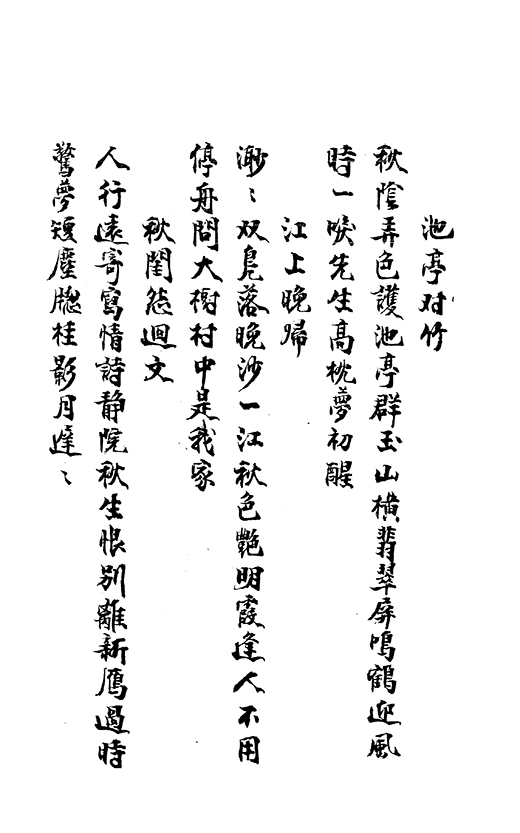 池亭对竹
秋陰弄色護池亭群玉山橫翡翠屏鳴鶴迎風
時一唳先生高枕夢初醒
江上晚歸
渺〻双鳧落晚沙一江秋色艷明霞逢人不用
停舟問大樹村中是我家
秋閨怨迴文
人行遠寄寫情詩静院秋生恨別離新鴈過時
驚夢短塵牕桂影月遲〻